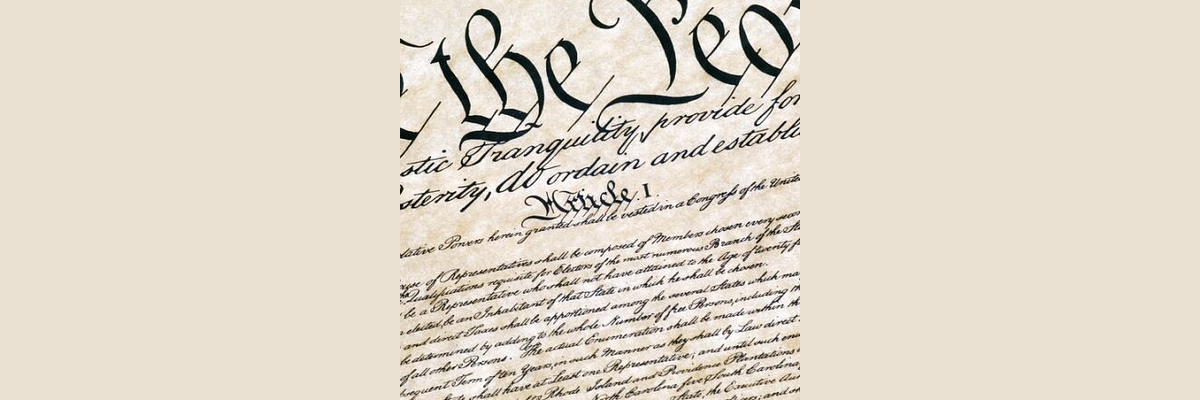 the Peo
stic Tranquility, provide for
sterity, do ordain and establi
Article. I.
lative Powers herein granted shall be vested in a Congress of the United
use of Representatives shall be composed of Members chosen every secon
Qualifications requisite for Electors of the most numerous Branch of the Sta
be a Representative who shall not have attained to the Age of twenty fi
elected, be an Inhabitant of that State in which he shall be chosen.
and direct Taxes shall be apportioned among the several States which ma
be determined by adding to the whole Number of free Persons, including th
of all other Persons. The actual Enumeration shall be made within th
sequent Term of ten Years, in such Manner as they shall by Law direct.
shall have at Least one Representative; and until such enu
Rhode Island and Providence Plantations
North Carolina five, South Carolina
State, the Executive Au